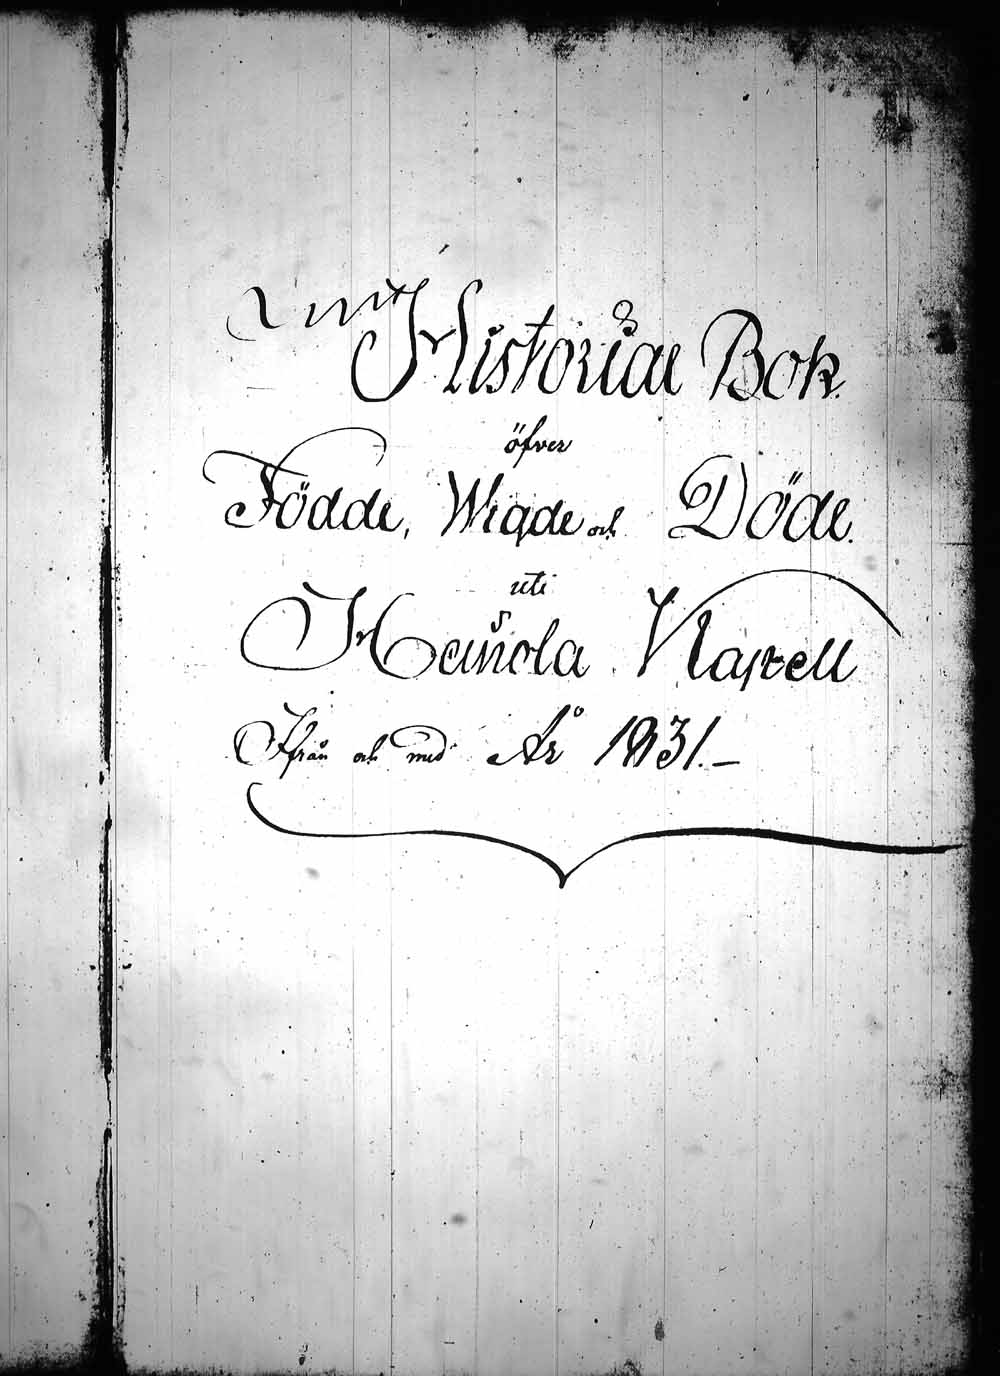 Historiae Bok
öfver
Födde, Wigde och Döde.
uti
Heinola Kapell
Ifrån och med År 1831.—